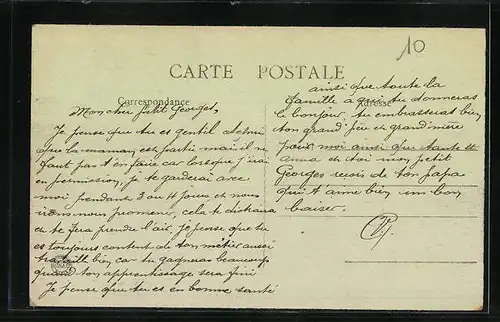 10
CARTE POSTALE
Correspondance
Adresse
Mon cher petit Georges,
Je pense que tu es gentil
que la maman est parti mais il ne
faut pas t'en faire car lorsque j'irai
en permission, je te garderai avec
moi pendant 3 ou 4 jours et nous
irons nous promener, cela te distraira
et te fera prendre l'air. Je pense que tu
es toujours content de ton métier aussi
travaille bien car tu gagneras beaucoup
quand ton apprentissage sera fini
Je pense que tu es en bonne santé
ainsi que toute la
famille a qui tu donneras
le bonjour, tu embrasseras bien
ton grand père et grand mère
pour moi ainsi que tante
anna et toi mon petit
Georges reçois de ton papa
qui t'aime bien un bon
baiser.